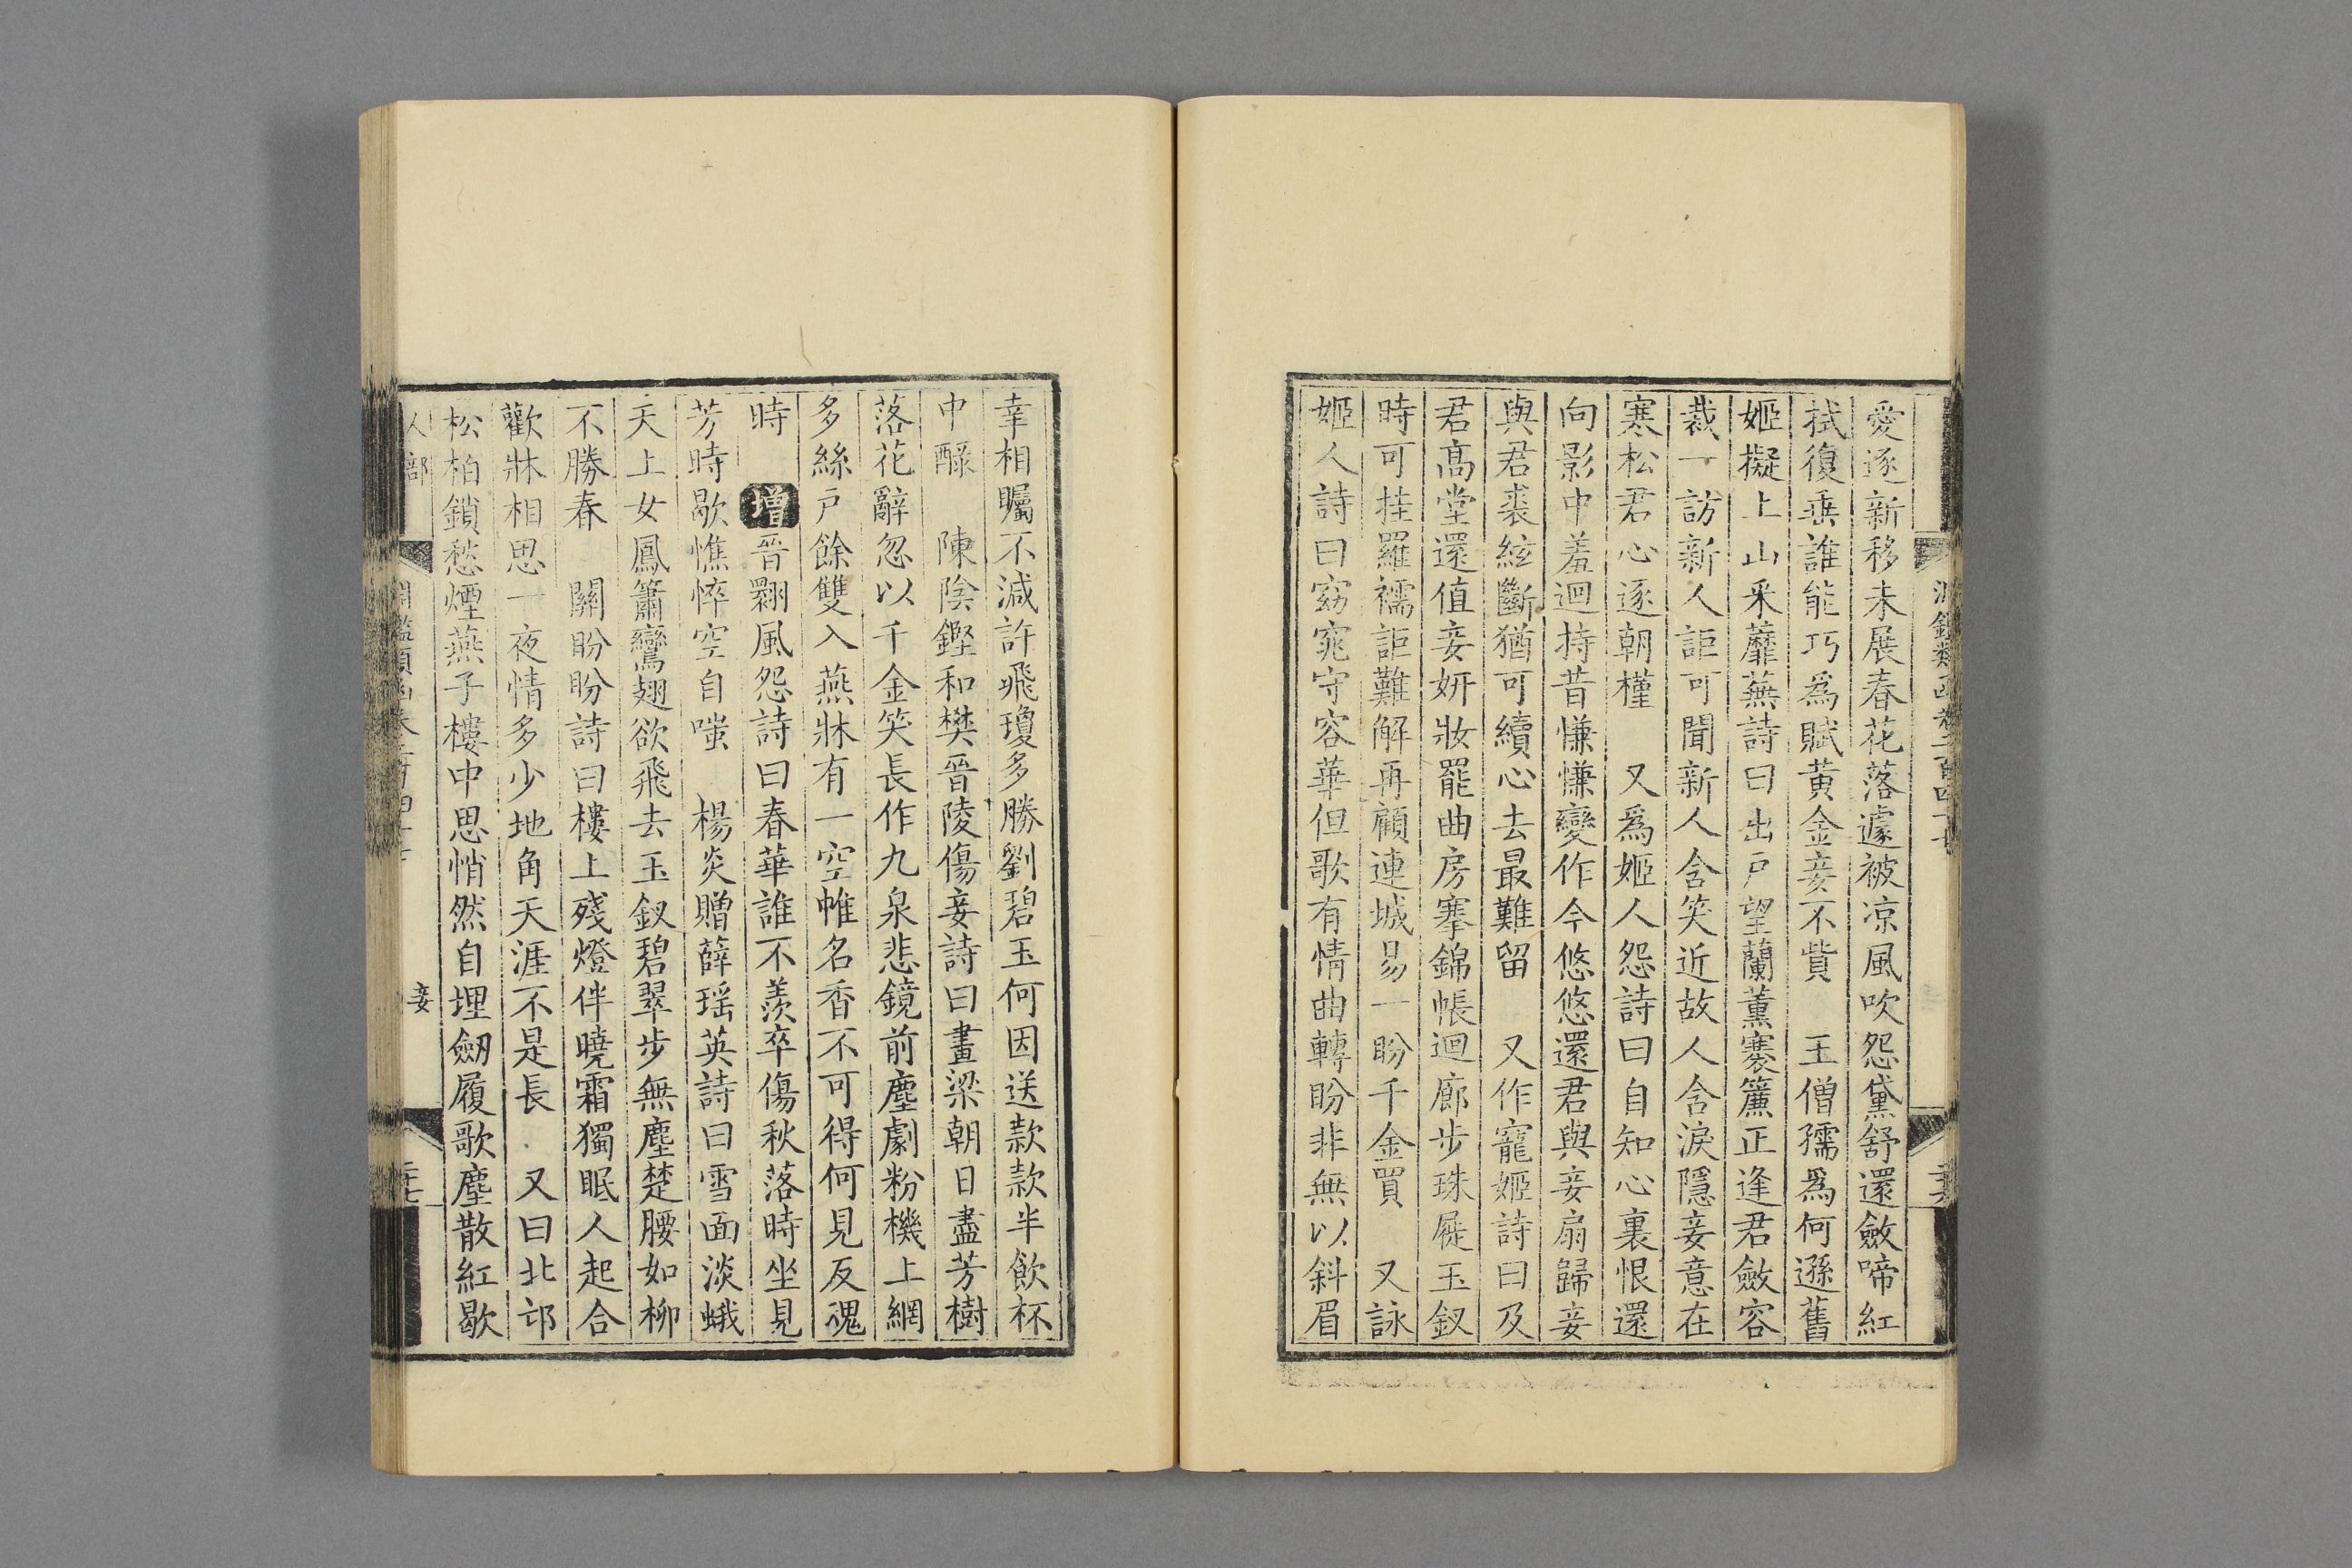 愛逐新移未展春花落遽被凉風吹怨黛舒還斂啼紅
拭復垂誰能巧爲賦黄金妾不貲　王僧孺爲何遜舊
姬擬上山采蘼蕪詩曰出戶望蘭薰褰簾正逢君斂容
裁一訪新人詎可聞新人含笑近故人含淚隱妾意在
寒松君心逐朝槿　又爲姬人怨詩曰自知心裏恨還
向影中羞迴持昔慊慊變作今悠悠還君與妾扇歸妾
與君裘絃斷猶可續心去最難留　又作寵姬詩曰及
君高堂還值妾妍妝罷曲房搴錦帳迴廊步珠屣玉釵
時可挂羅襦詎難解再顧連城易一盼千金買　又詠
姬人詩曰窈窕守容華但歌有情曲轉盼非無以斜眉
二十六
幸相矚不減許飛瓊多勝劉碧玉何因送款款半飲杯
中醁　陳陰鏗和樊晉陵傷妾詩曰畫梁朝日盡芳樹
落花辭忽以千金笑長作九泉悲鏡前塵劇粉機上網
多絲戶餘雙入燕牀有一空帷名香不可得何見反魂
時　增晉翾風怨詩曰春華誰不羨卒傷秋落時坐見
芳時歇憔悴空自嗤　楊炎贈薛瑶英詩曰雪面淡蛾
天上女鳳簫鸞翅欲飛去玉釵碧翠步無塵楚腰如柳
不勝春　關盼盼詩曰樓上殘燈伴曉霜獨眠人起合
歡牀相思一夜情多少地角天涯不是長　又曰北邙
松柏鎖愁煙燕子樓中思悄然自埋劒履歌塵散紅歇
人部
妾
二十七